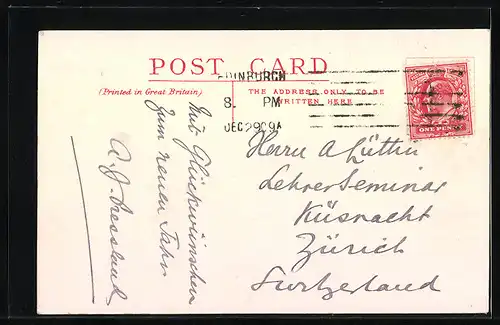 POST CARD
(Printed in Great Britain)
THE ADDRESS ONLY TO BE
WRITTEN HERE
EDINBURGH
8. PM
DEC 29 09A
ONE PENNY
Mit Glückwünschen
zum neuen Jahr
A. J.
Herrn A Lüthi
Lehrer Seminar
Küsnacht
Zürich
Switzerland